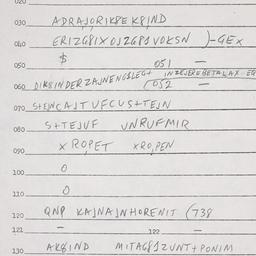 020
030 ADRAJORIKPE K8IND
040 ERIZG8IXOJZGPSVOKSN )-GEX
050 $ 051 —
060 DIK8INDERZAJNENGSLEGT INZEJEREBETALAX-EG
052 —
070 STEJNCAJTUFCUSTEJN
080 STEJUF UNRUFMIR
090 XROPET XROPEN
100 0
110 0
120 QNP KAJNAJNHORENIT (738
121 — 122 —
130 AK8IND MITAG8JZUNT+PONIM